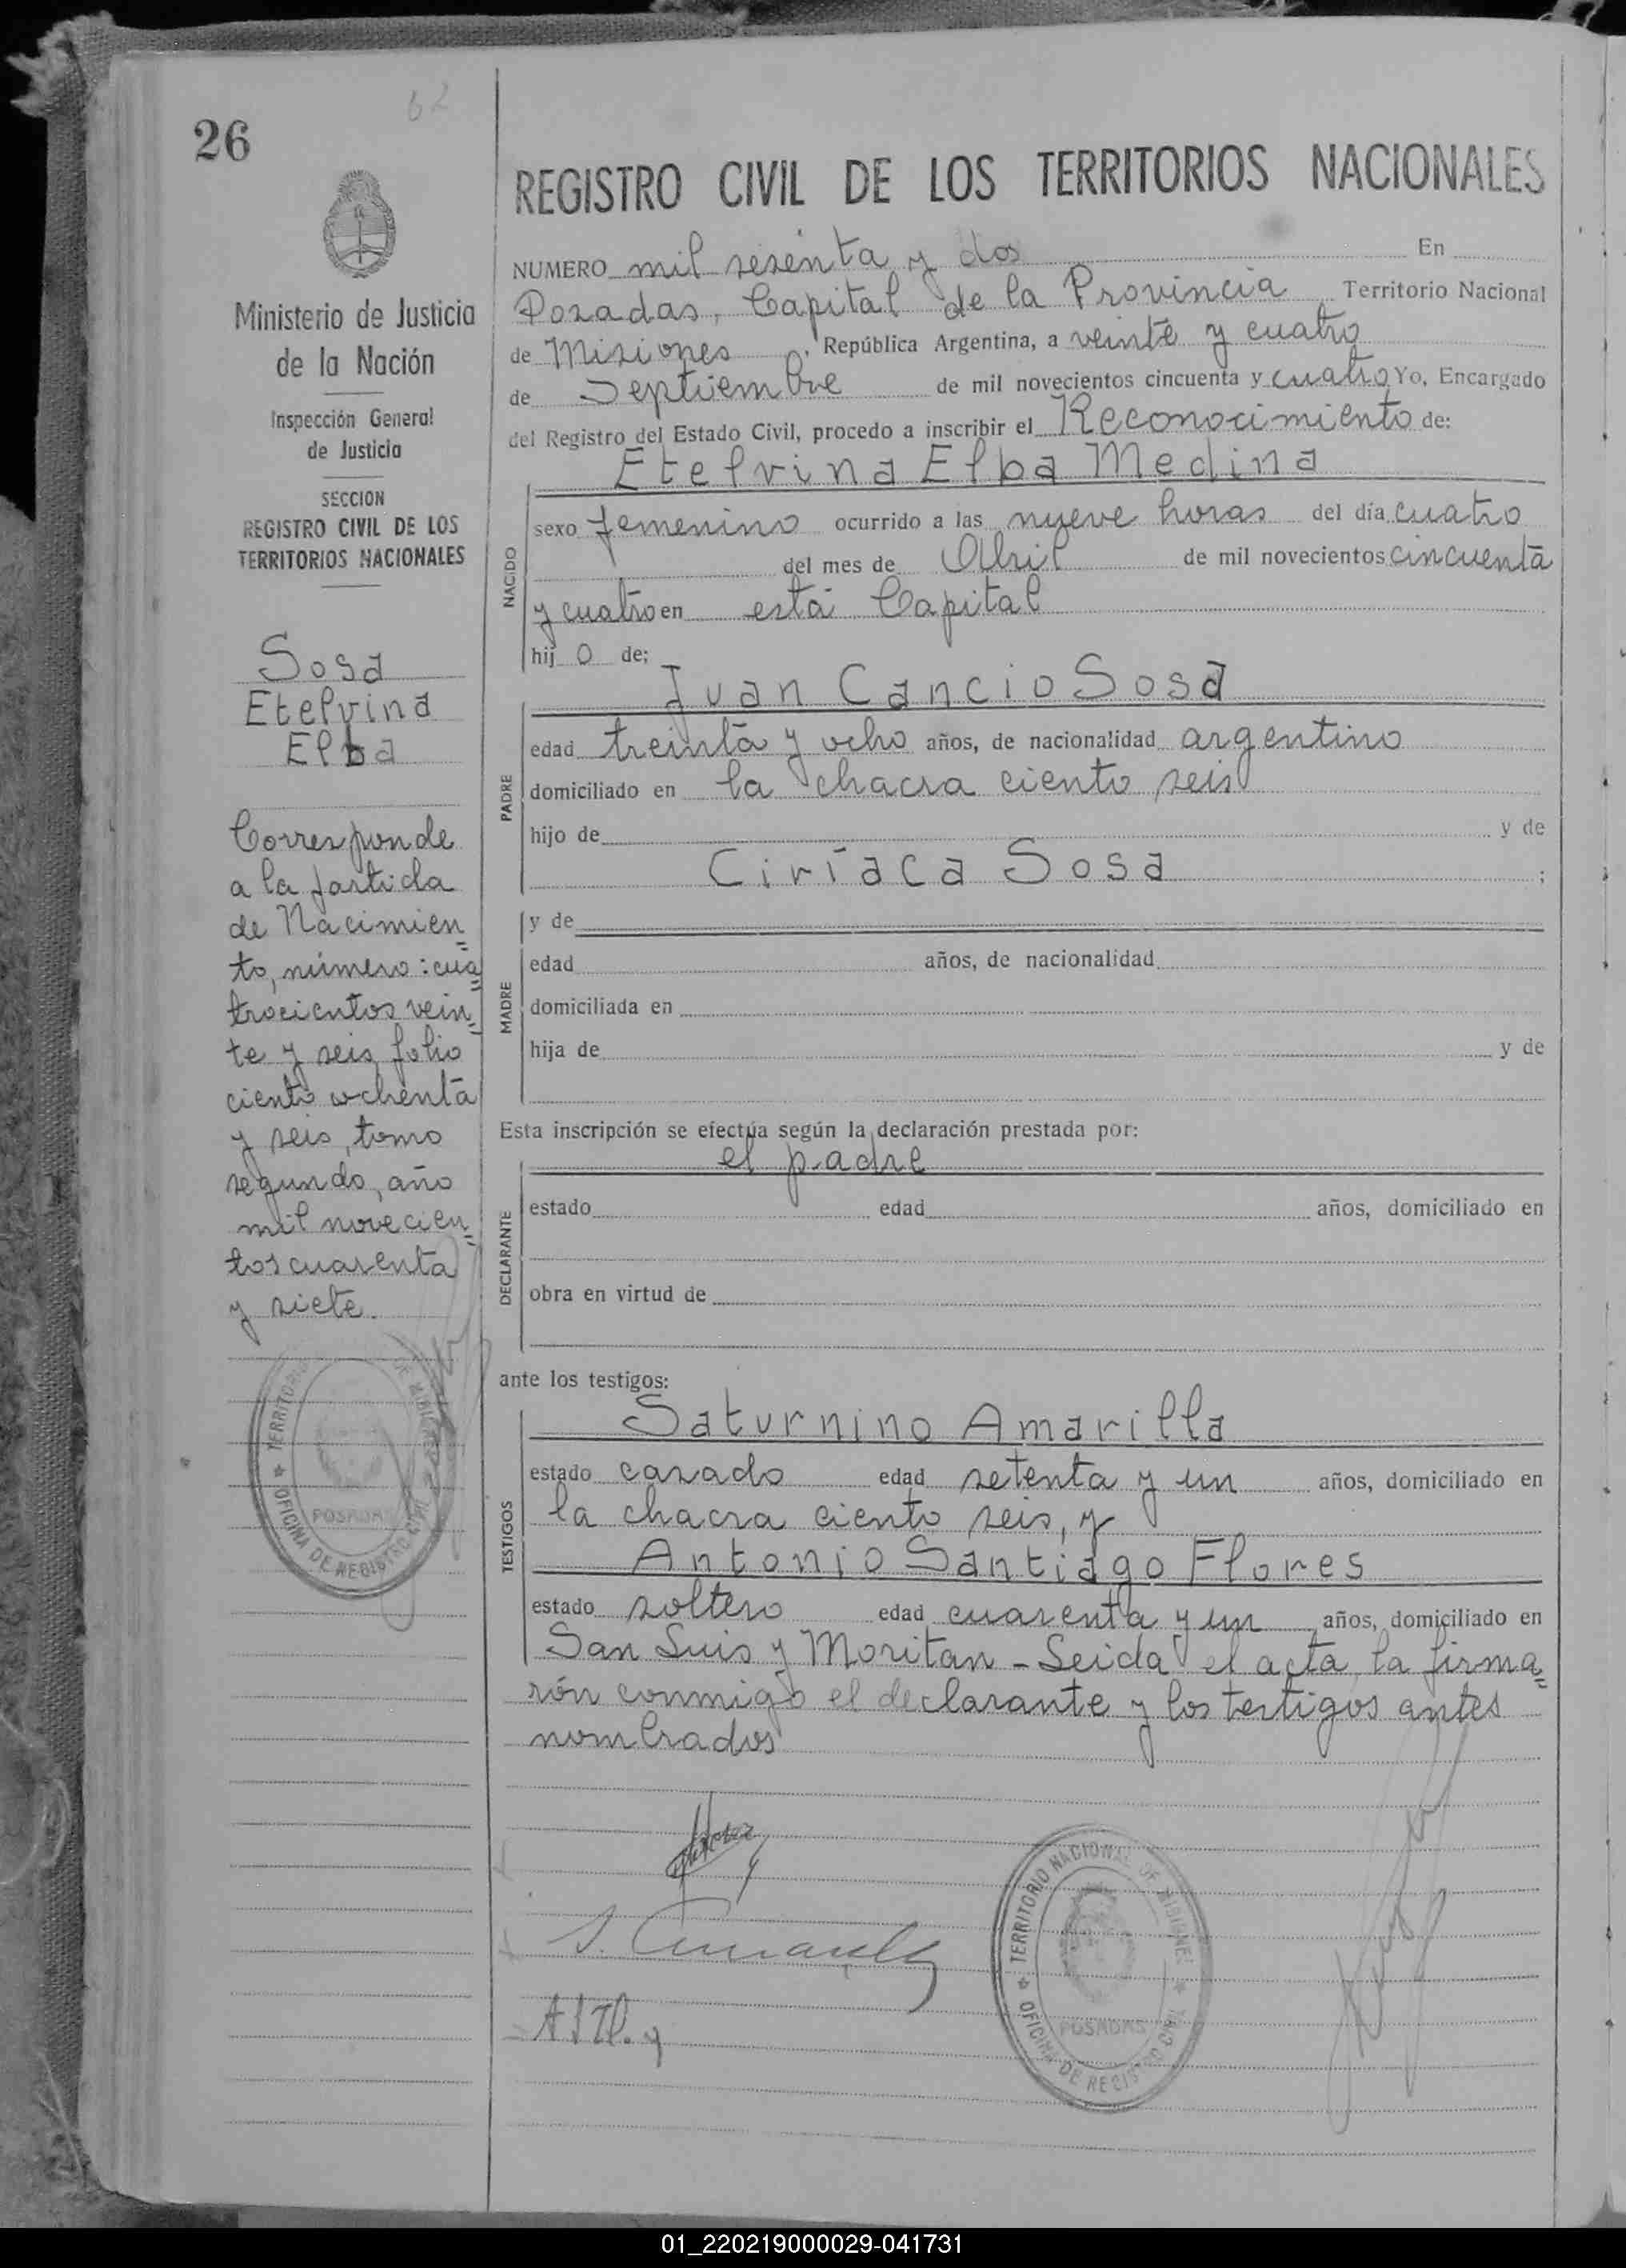 62
26
Ministerio de Justicia
de la Nación
Inspección General
de Justicia
SECCION
REGISTRO CIVIL DE LOS
TERRITORIOS NACIONALES
Sosa
Etelvina
Elba
Corresponde
a la partida
de Nacimien=
to, número: cua=
trocientos vein=
te y seis folio
ciento ochenta
y seis, tomo
segundo, año
mil novecien=
tos cuarenta
y siete.
TERRITORIO DE MISIONES
POSADAS
OFICINA DE REGISTRO CIVIL
REGISTRO CIVIL DE LOS TERRITORIOS NACIONALES
NUMERO mil sesenta y dos En
Posadas, Capital de la Provincia Territorio Nacional
de Misiones, República Argentina, a veinte y cuatro
de Septiembre de mil novecientos cincuenta y cuatro Yo, Encargado
del Registro del Estado Civil, procedo a inscribir el Reconocimiento de:
NACIDO
Etelvina Elba Medina
sexo femenino ocurrido a las nueve horas del día cuatro
del mes de Abril de mil novecientos cincuenta
y cuatro en esta Capital
hij o de;
PADRE
Juan Cancio Sosa
edad treinta y ocho años, de nacionalidad argentino
domiciliado en la chacra ciento seis
hijo de y de
Ciríaca Sosa ;
MADRE
y de
edad años, de nacionalidad
domiciliada en
hija de y de
Esta inscripción se efectúa según la declaración prestada por:
DECLARANTE
el padre
estado edad años, domiciliado en
obra en virtud de
ante los testigos:
TESTIGOS
Saturnino Amarilla
estado casado edad setenta y un años, domiciliado en
la chacra ciento seis, y
Antonio Santiago Flores
estado soltero edad cuarenta y un años, domiciliado en
San Luis y Moritan - Leida el acta, la firma=
rón conmigo el declarante y los testigos antes
nombrados
S. Amarilla
TERRITORIO NACIONAL DE MISIONES
POSADAS
OFICINA DE REGISTRO CIVIL
01_220219000029-041731